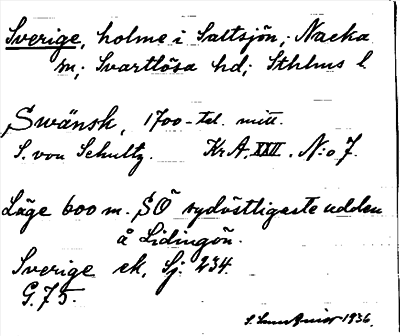 Sverige, holme i Saltsjön, Nacka
sn; Svartlösa hd; Sthlms l.
Swänsk, 1700-tal. mitt.
S. von Schultz. KrA. XXII. N:o 7.
Läge 600 m. SÖ sydöstligaste udden
å Lidingön.
Sverige ek. Sj. 234.
G. 75.
1936.